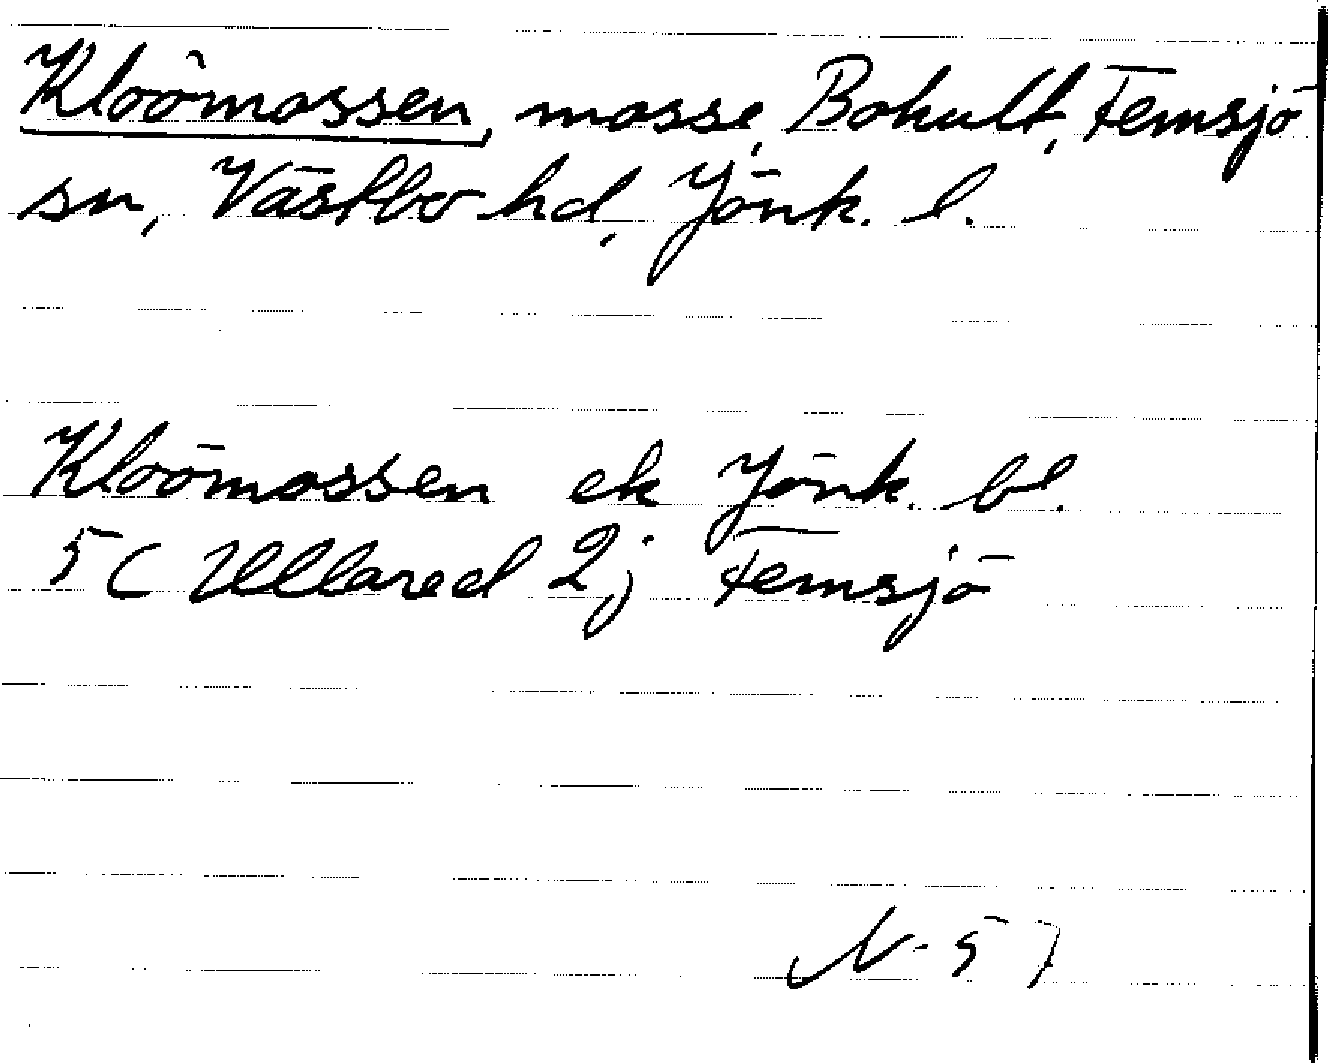 Kloömossen, mosse, Bohult, Femsjö
sn, Västbo hd, Jönk. l.
Kloömossen ek Jönk. bl.
5C Ullared 2j Femsjö
N-57